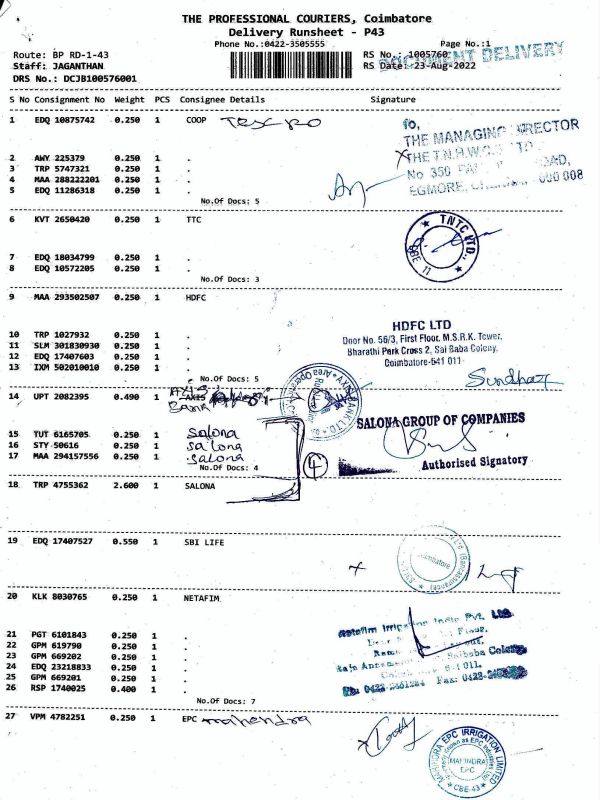 THE PROFESSIONAL COURIERS, Coimbatore
Delivery Runsheet - P43
Phone No.:0422-3505555
Page No.:1
Route: BP RD-1-43
RS No.: 1005760
DOCUMENT DELIVERY
Staff: JAGANTHAN
RS Date: 23-Aug-2022
DRS No.: DCJB100576001
S No Consignment No Weight PCS Consignee Details Signature
1 EDQ 10875742 0.250 1 COOP
To,
THE MANAGING DIRECTOR
THE T.N.H.W.C.S LTD
No 350 ROAD,
EGMORE, 600 008
2 AWY 225379 0.250 1 .
3 TRP 5747321 0.250 1 .
4 MAA 288222201 0.250 1 .
5 EDQ 11286318 0.250 1 .
No.Of Docs: 5
6 KVT 2650420 0.250 1 TTC
TNTC LTD.,
CBE 11
7 EDQ 18034799 0.250 1 .
8 EDQ 10572205 0.250 1 .
No.Of Docs: 3
9 MAA 293502507 0.250 1 HDFC
HDFC LTD
Door No. 56/3, First Floor, M.S.R.K. Tower,
Bharathi Park Cross 2, Sai Baba Colony,
Coimbatore-641 011
10 TRP 1027932 0.250 1 .
11 SLM 301830930 0.250 1 .
12 EDQ 17407603 0.250 1 .
13 IXM 502010010 0.250 1 .
No.Of Docs: 5
14 UPT 2082395 0.490 1 AXIS
Bank
AXIS BANK LTD
SALONA GROUP OF COMPANIES
Authorised Signatory
15 TUT 6165705 0.250 1 Salona
16 STY 50616 0.250 1 Salona
17 MAA 294157556 0.250 1 Salona
No.Of Docs: 4
4
18 TRP 4755362 2.600 1 SALONA
19 EDQ 17407527 0.550 1 SBI LIFE
Coimbatore
20 KLK 8030765 0.250 1 NETAFIM
Netafim Irrigation India Pvt. Ltd.
Floor,
Saibaba Colony
641 011.
Ph: 0422- Fax: 0422-
21 PGT 6101843 0.250 1 .
22 GPM 619790 0.250 1 .
23 GPM 669202 0.250 1 .
24 EDQ 23218833 0.250 1 .
25 GPM 669201 0.250 1 .
26 RSP 1740025 0.400 1 .
No.Of Docs: 7
27 VPM 4782251 0.250 1 EPC mahendra
MAHINDRA EPC IRRIGATION LIMITED
MAHINDRA
EPC
CBE-43